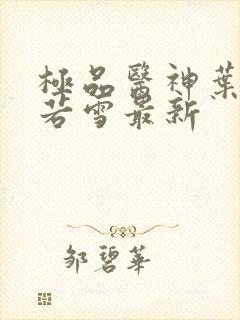 極品醫神葉
若雪最新
鄒碧華